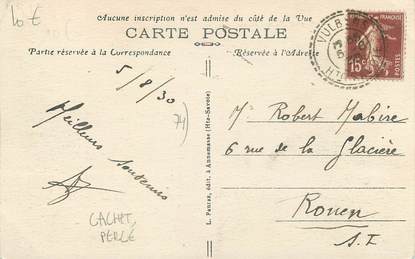 10 €
Aucune inscription n'est admise du côté de la Vue
CARTE POSTALE
Partie réservée à la Correspondance
Réservée à l'Adresse
5/8/30
Meilleurs souvenirs
74
CACHET
PERLÉ
L. Fauraz, édit. à Annemasse (Hte-Savoie)
VULB
HTE
RÉPUBLIQUE FRANÇAISE
15c
POSTES
Mr Robert Mabire
6 rue de la Glacière
Rouen
S. I